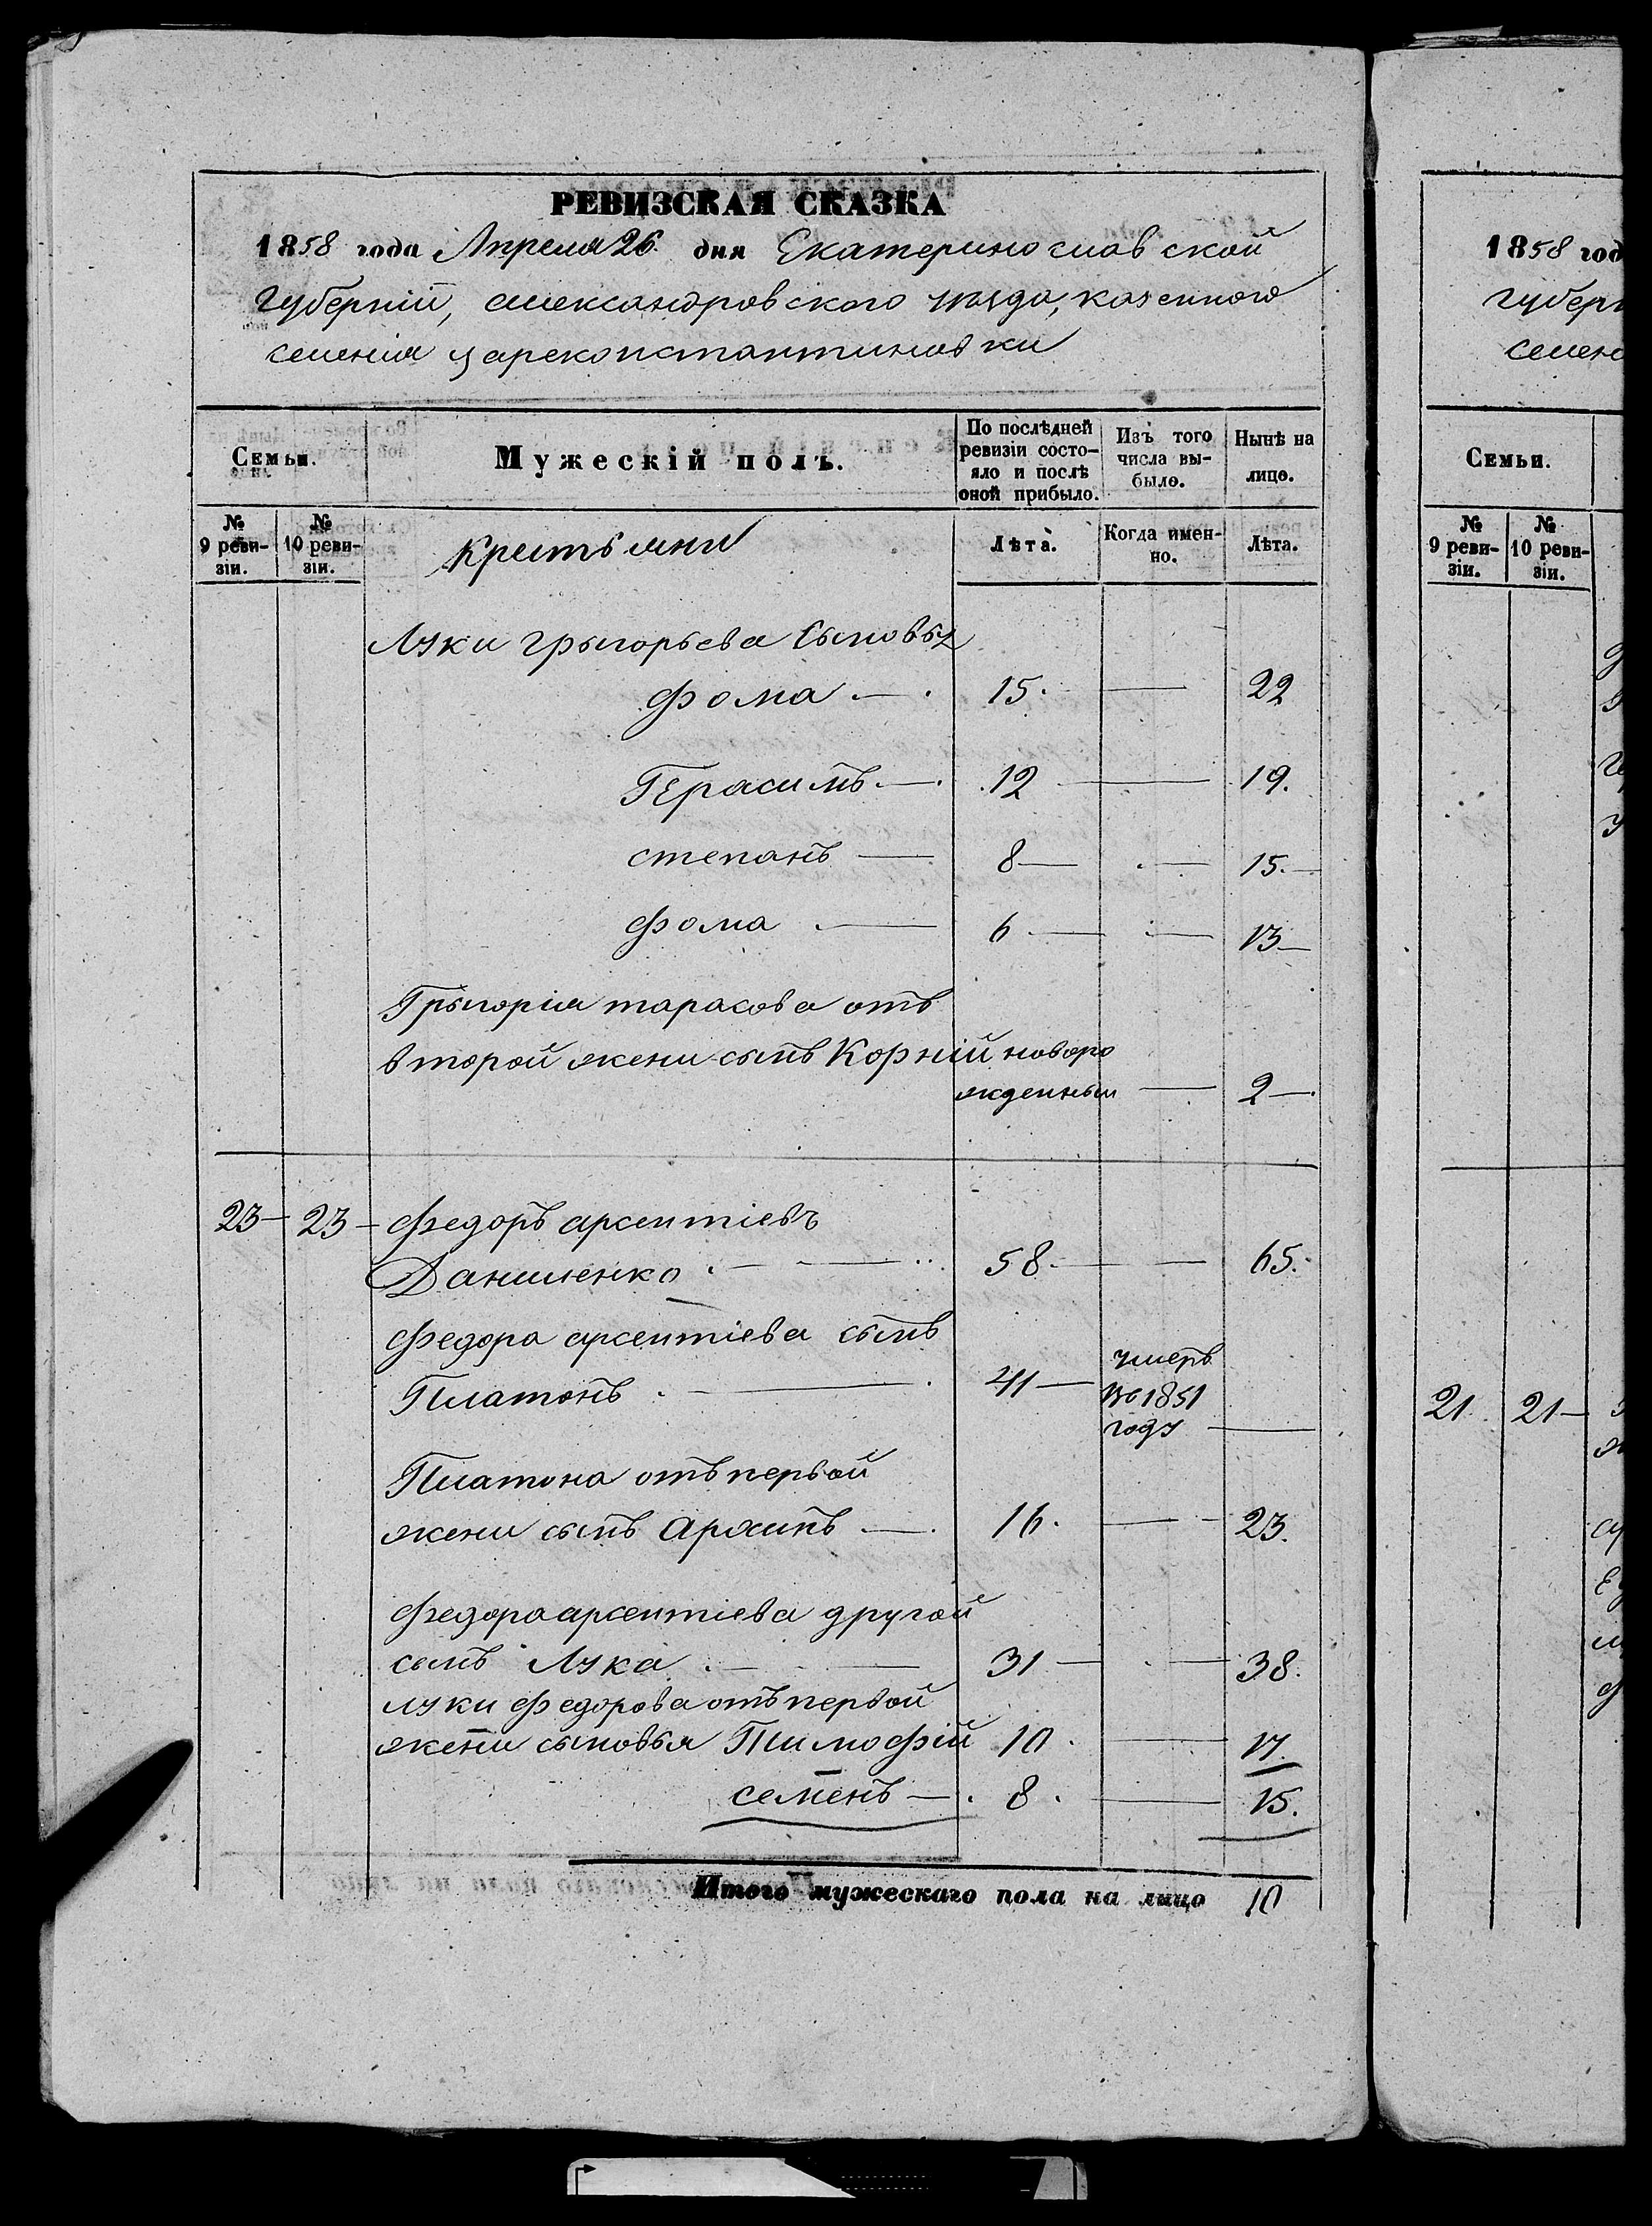 РЕВИЗСКАЯ СКАЗКА
1858 года Апреля 26 дня Екатеринославской
губерніи, александровского уезда, казенного
селенія цареконстантиновки
Семьи.
Мужескій полъ.
По послѣдней ревизіи состояло и послѣ оной прибыло.
Изъ того числа выбыло.
Нынѣ на лицо.
№ 9 ревизіи.
№ 10 ревизіи.
крестьяни
Лѣта.
Когда именно.
Лѣта.
Луки грыгорьева сыновья
Фома — 15. — 22
Герасимъ — 12 — 19.
степанъ — 8 — 15.
Фома — 6 — 13
Грыгорія тарасова отъ
второй жени сынъ Корній новоро
жденный — 2
23 23 Федоръ арсентіевъ
Даниленко 58. — 65.
Федора арсентіева сынъ
Платонъ — 41 — умеръ
въ 1851
году —
Платона отъ первой
жени сынъ — 16. — 23.
Федора арсентіева другой
сынъ Лука — 31 — 38.
луки Федорова отъ первой
жени сыновья Тимофій 10. — 17.
семенъ — 8. — 15.
Итого мужескаго пола на лицо 10
1858 год
губерн
селен
Семьи.
№ 9 ревизіи.
№ 10 ревизіи.
21 21